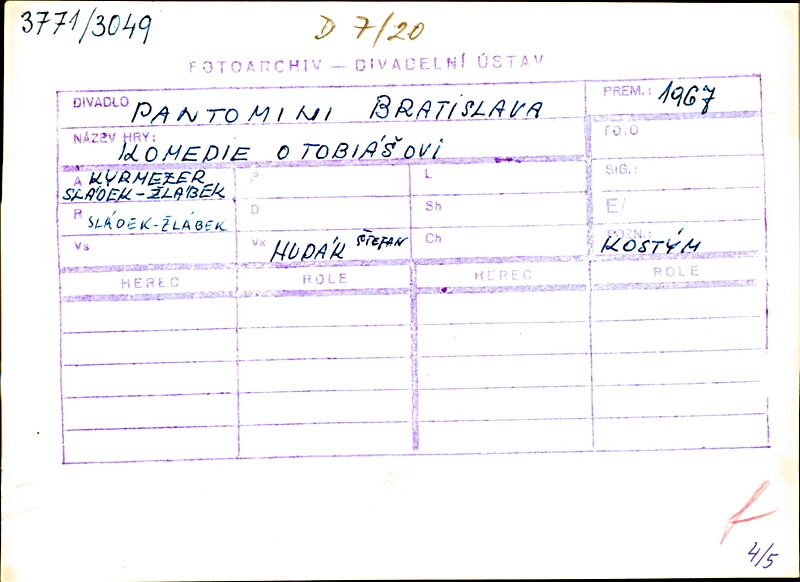 3771/3049 D 7/20
FOTOARCHIV — DIVADELNÍ ÚSTAV
DIVADLO PANTOMINI BRATISLAVA PREM.: 1967
NÁZEV HRY: KOMEDIE O TOBIÁŠOVI FO.O
A KYRMEZER P L SIG.:
SLÁDEK-ŽLÁBEK
R SLÁDEK-ŽLÁBEK D Sh E/
Vs Vk HUDÁK ŠTEFAN Ch POZN.: KOSTÝM
HEREC ROLE HEREC ROLE
4/5